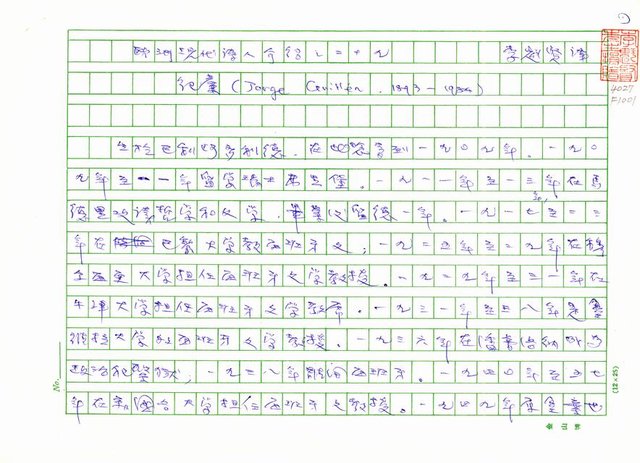 歐洲現代詩人介紹之二十九 李魁賢譯
紀廉(Jorge Guillén, 1893-1984)
4027
F1001
生於巴利阿多利德。在此受育到一九〇九年。一九〇
九年至一一年留學瑞士弗里堡。一九一一年至一三年在馬
德里攻讀哲學和文學。畢業後留德一年。一九一七至二三
年在巴黎大學教西班牙文；一九二四年至二九年在穆
爾西亞大學担任西班牙文學教授。一九二九年至三一年在
牛津大學担任西班牙文學教席。一九三一年至三八年是塞
維拉大學的西班牙文學教授。一九三六年在潘普洛納時為
政治犯繫獄，一九三八年離開西班牙。一九四〇年至五七
年在美國各大學担任西班牙文教授。一九四九年
No.
(12×25)
金山牌